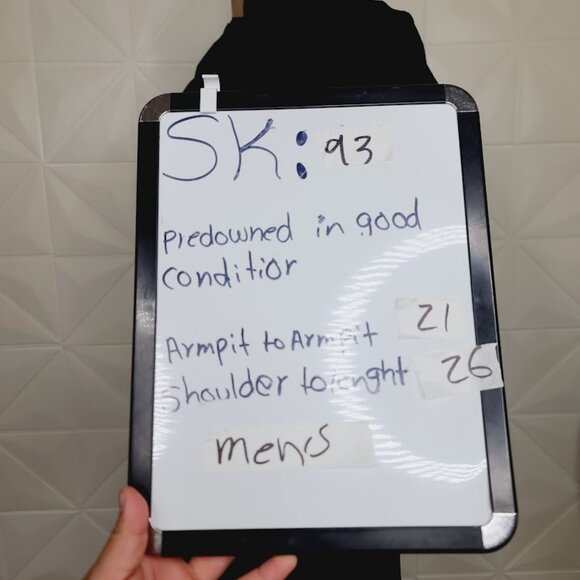 SK: 93
Predowned in good
condition
Armpit to Armpit 21
shoulder to lenght 26
mens